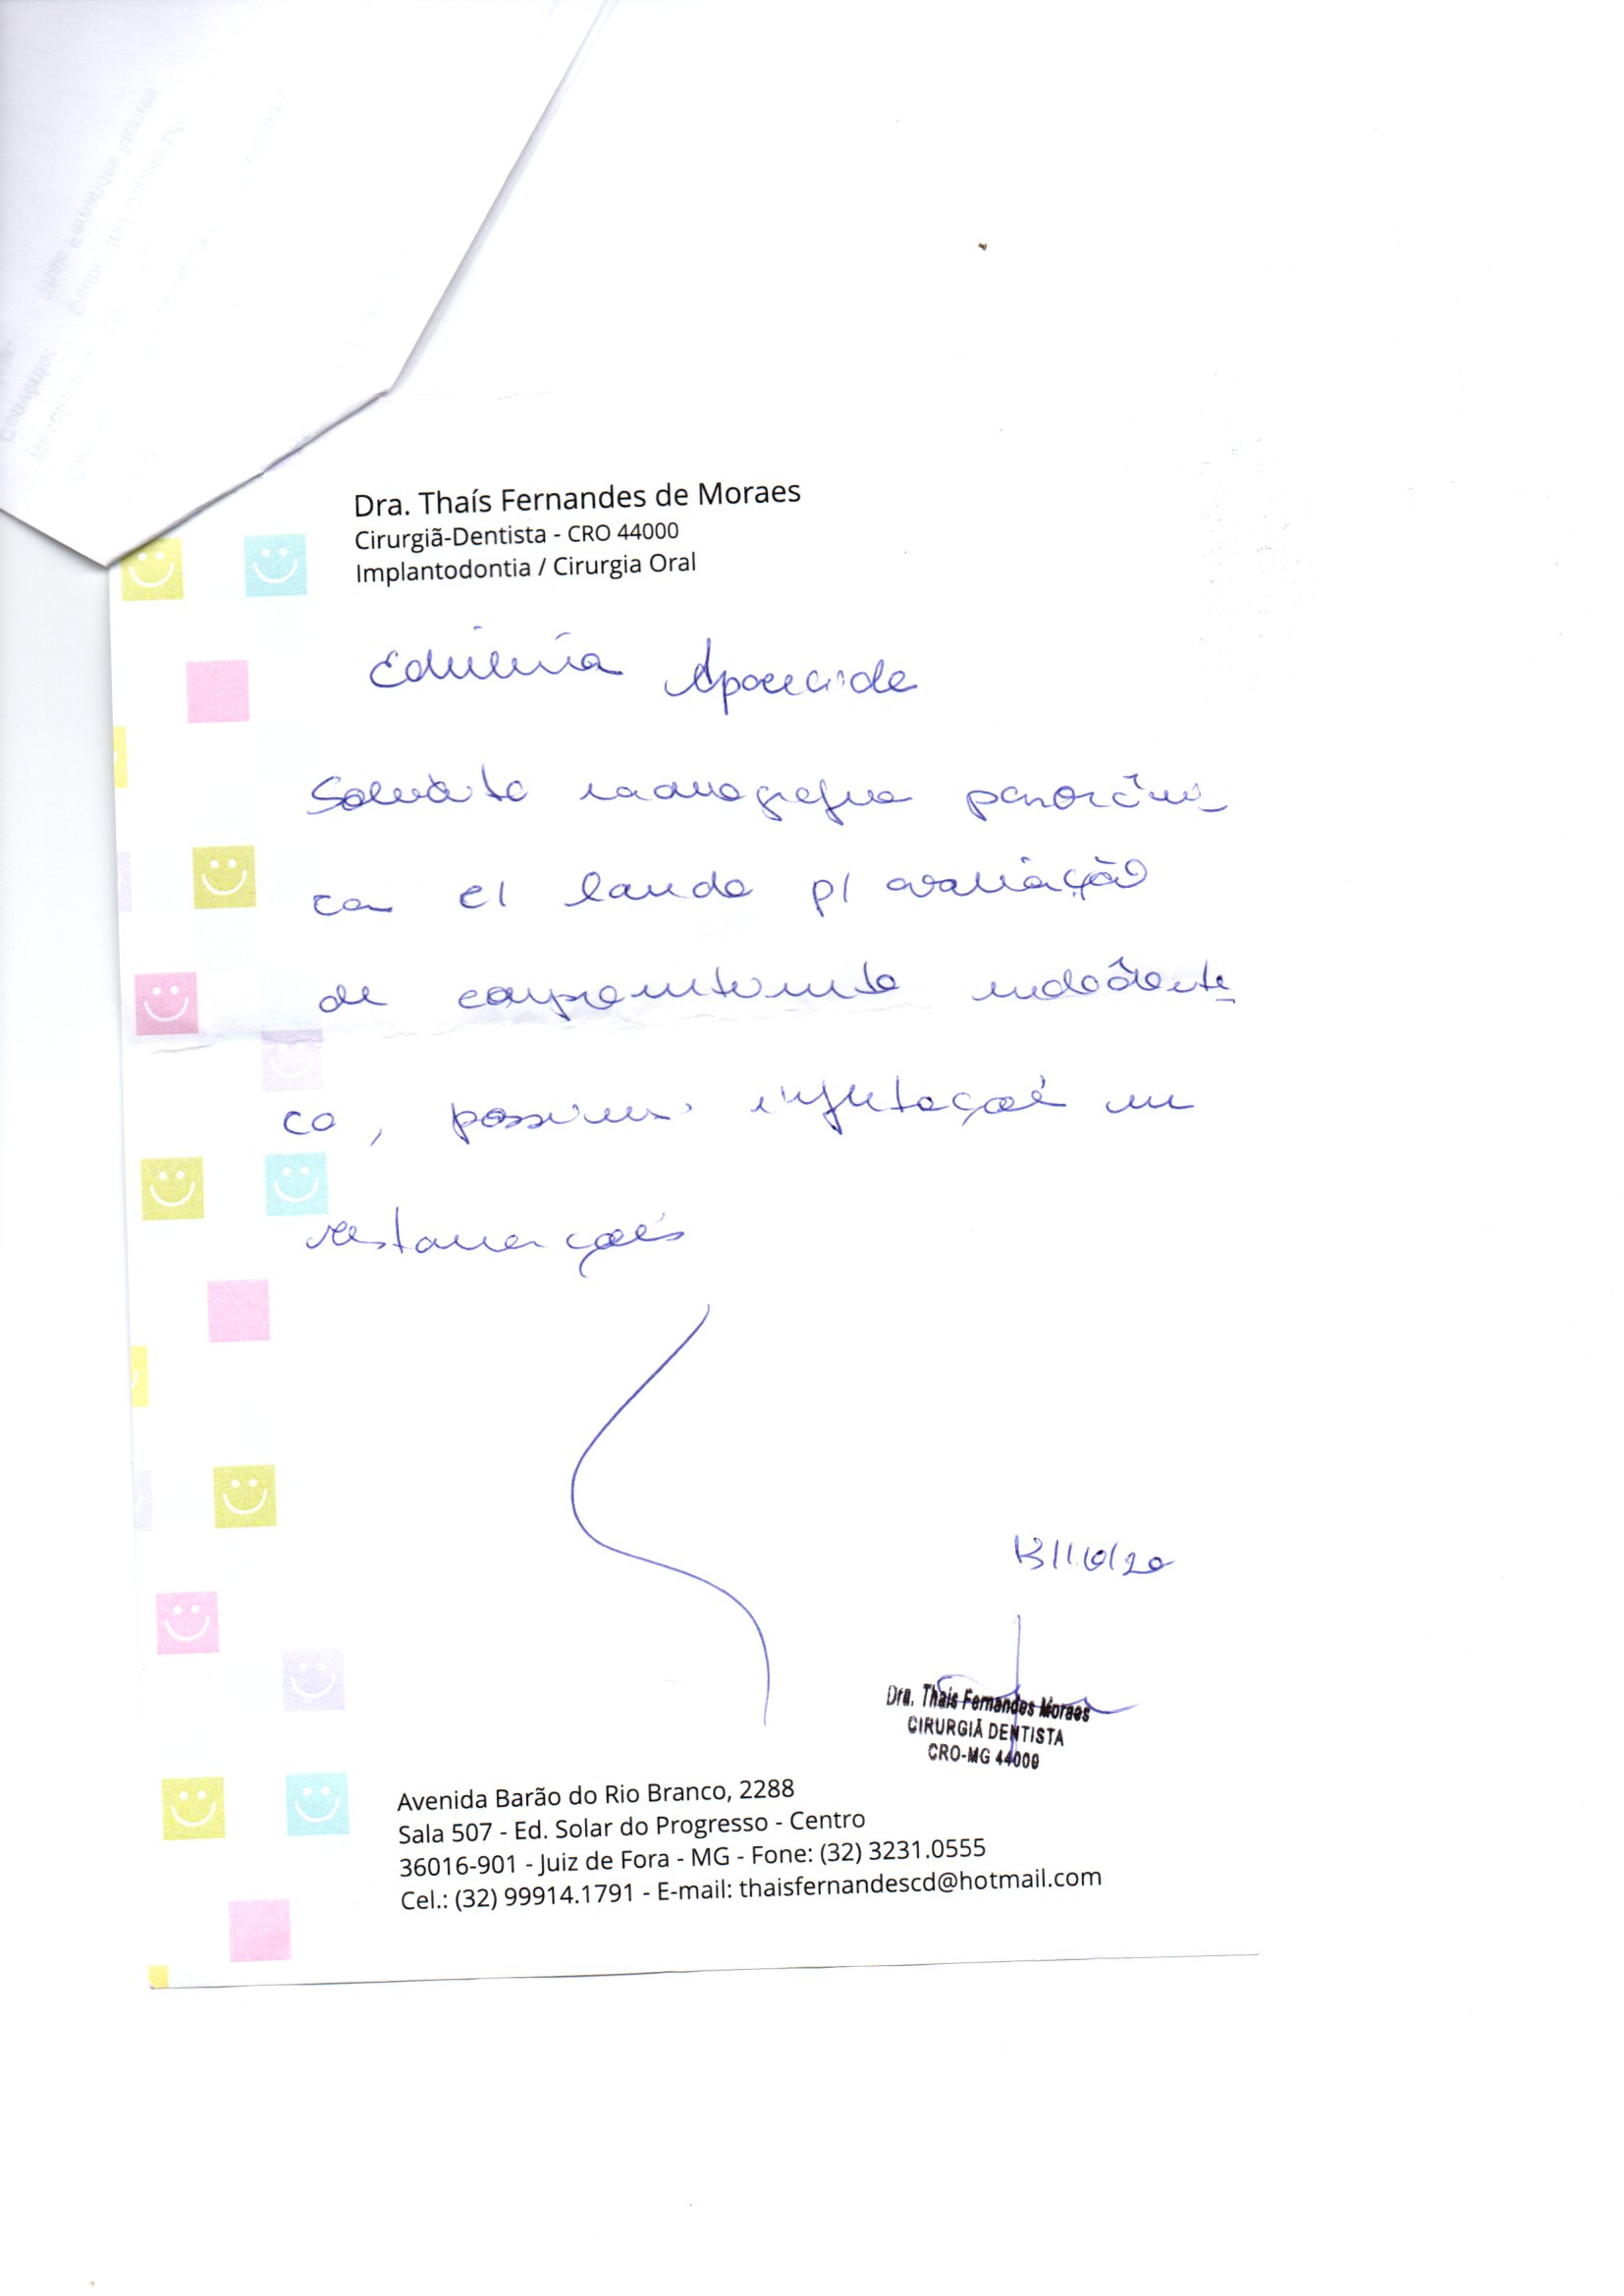 Dra. Thaís Fernandes de Moraes
Cirurgiã-Dentista - CRO 44000
Implantodontia / Cirurgia Oral
Aparecida
Solicito radiografia panorâmi
ca c/ laudo p/ avaliação
de comprometimento endodônti
co, possíveis infiltrações em
restaurações
13/10/20
Dra. Thaís Fernandes Moraes
CIRURGIÃ DENTISTA
CRO-MG 44000
Avenida Barão do Rio Branco, 2288
Sala 507 - Ed. Solar do Progresso - Centro
36016-901 - Juiz de Fora - MG - Fone: (32) 3231.0555
Cel.: (32) 99914.1791 - E-mail: thaisfernandescd@hotmail.com